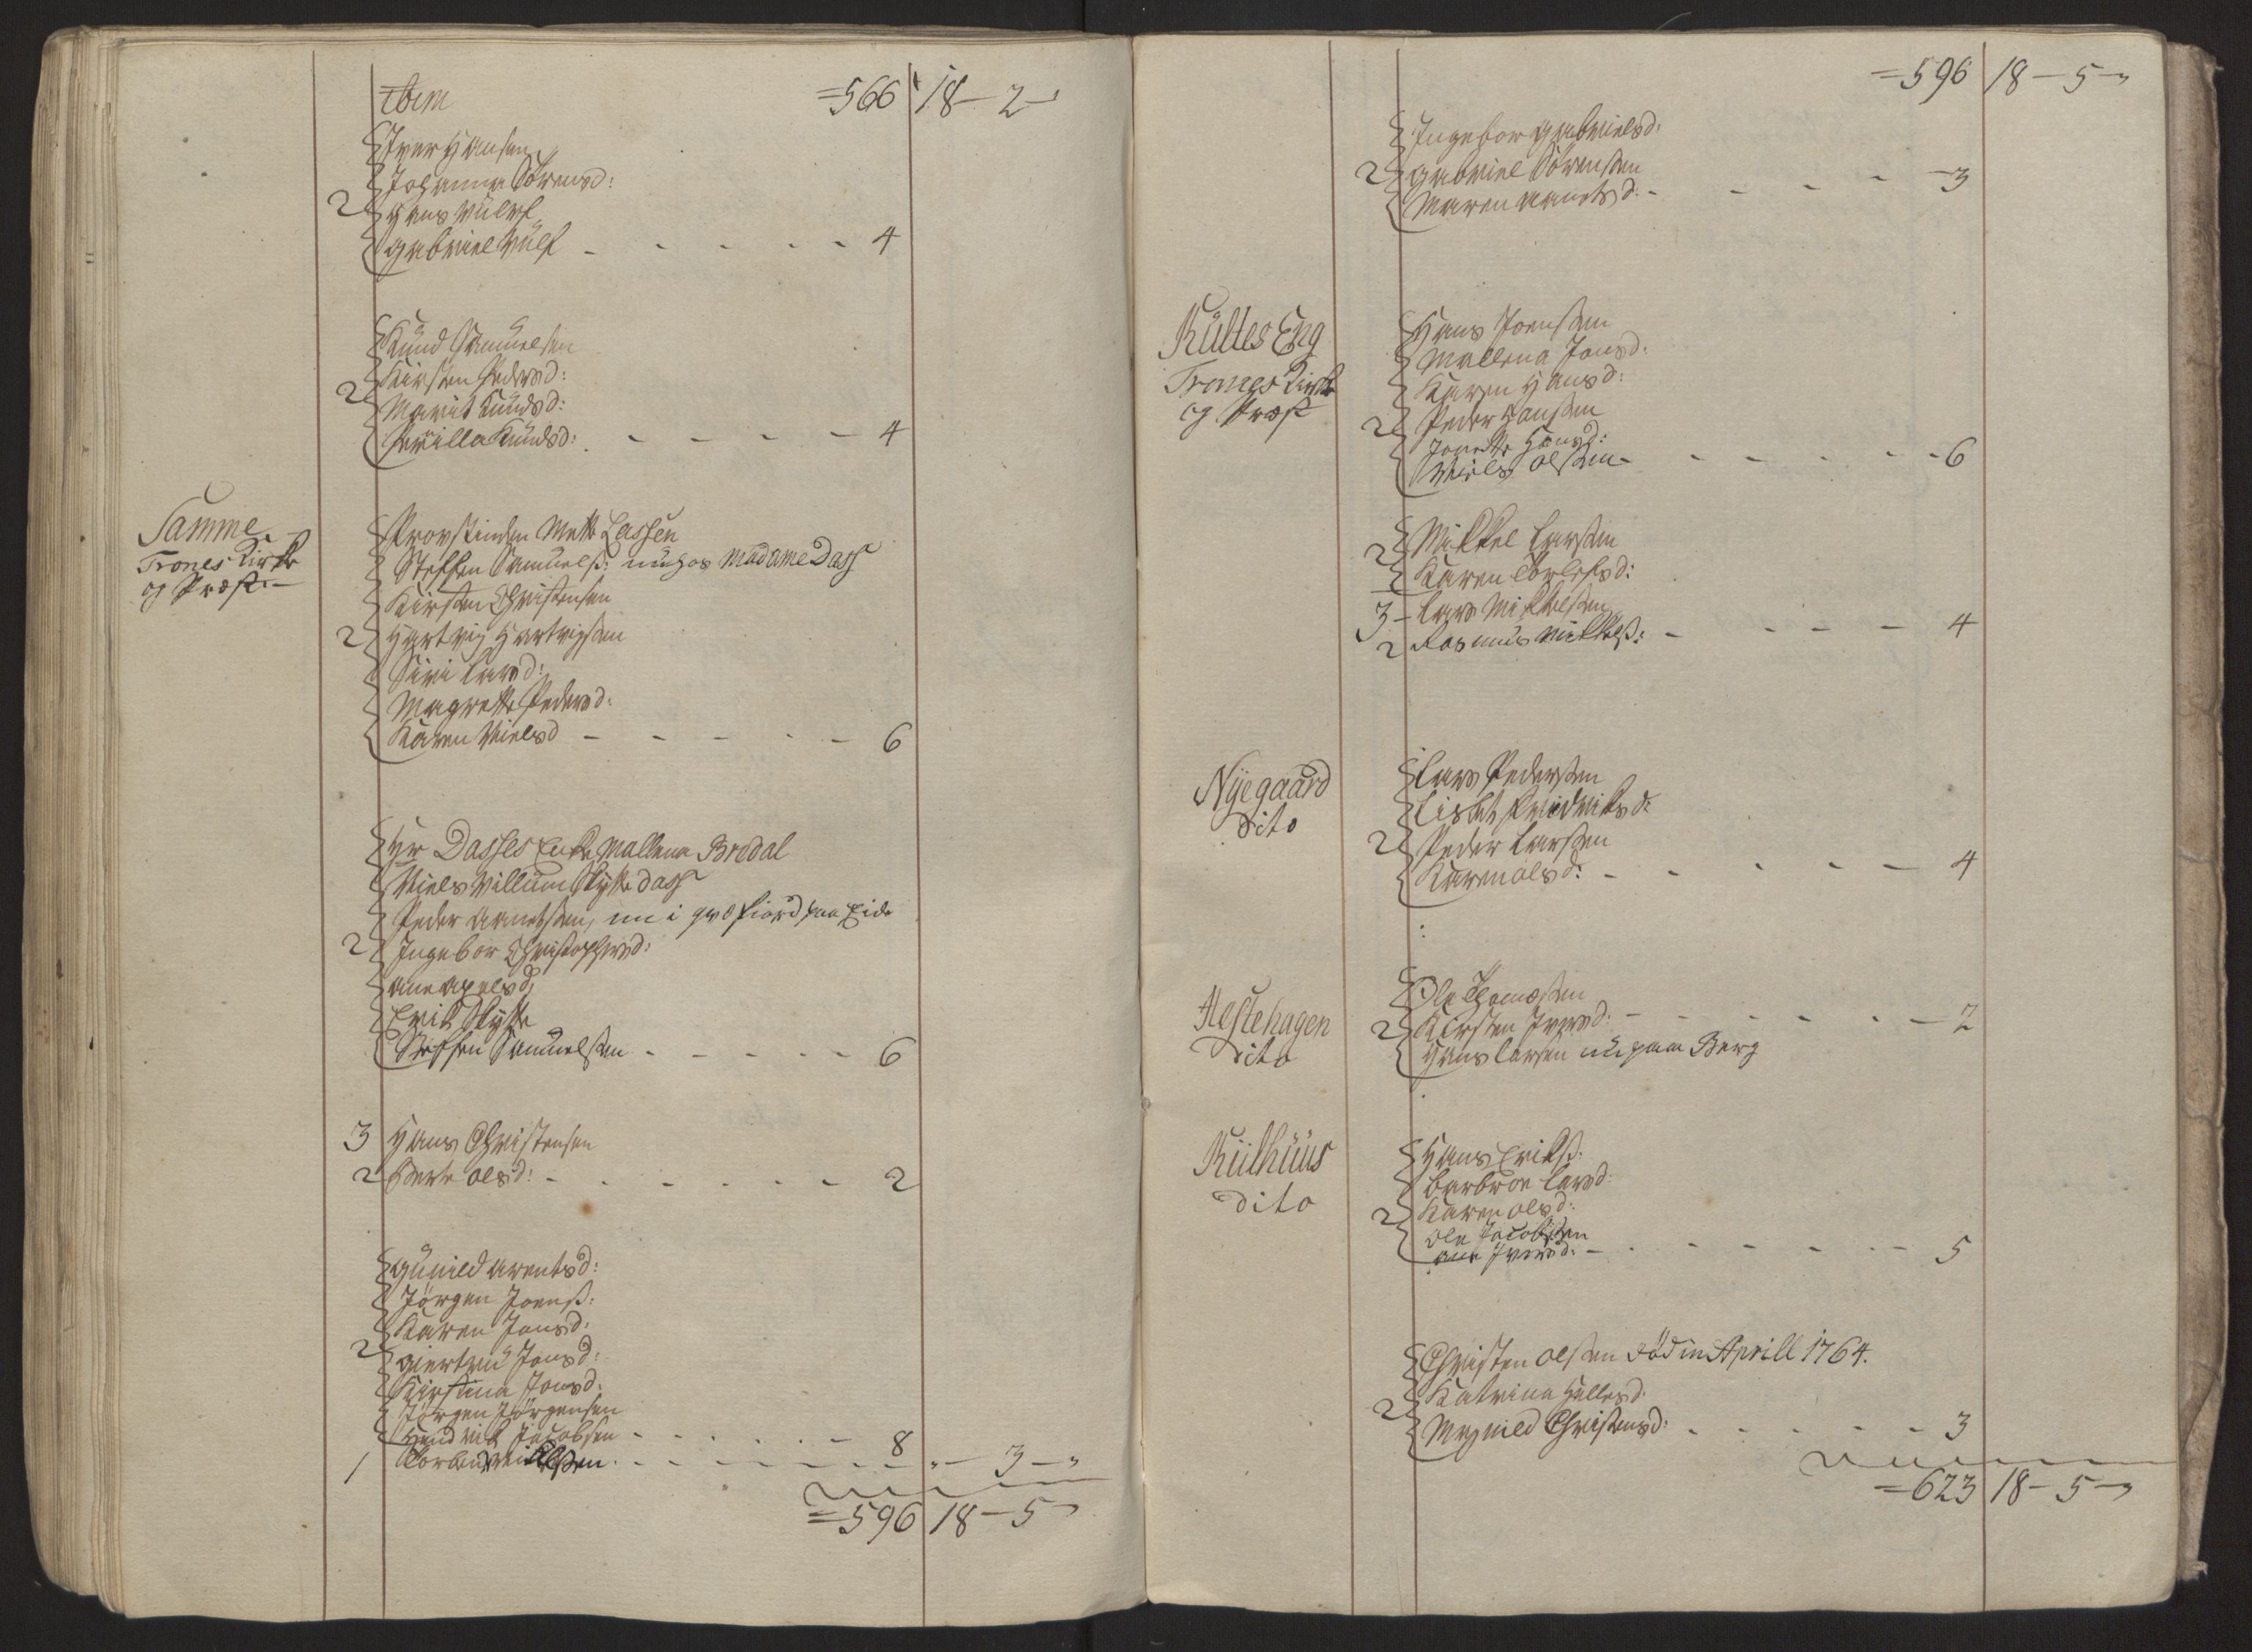 Item =566 18-2-
Iver Hansen
Johanna Sörensd:
2 Hans Wülf
Gabriel Wülf - - - - - 4
Knud Samuelsen
Kirsten Pedersd:
2 Marit Knudsd:
Knudsd: - - - - 4
Samme
Trones Kirke
og Præst. -
Provstinden Mette Lassen
Steffen Samuelss: nu hos Madame Dass
Kirsten Christensen
2 Hartvig Hartvigsen
Siri Larsd:
Magrette Pedersd:
Karen Nielsd - - - - - 6
Hr Dasses Enke Mallena Bredal
Niels Villum Schytte Dass
Peder Arentsen, nu i fiord paa Eide
2 Ingebor Christophersd:
Ane Axelsd
Erich Schytte
Steffen Samuelsen - - - - - 6
3 Hans Christensen
2 Berte Olsd: - - - - - - 2
Gunild Arentsd:
Jörgen Joenss:
Karen Jonsd:
2 Giertrud Jonsd:
Kirstina Jonsd:
Jörgen Jörgensen
Hendrik Jacobsen - - - - - 8
1 - - - - - - - „ - 3 - „
=596 18-5-
=596 18-5-
Ingebor Gabrielsd:
2 Gabriel Sörensen
Maren Arentsd: - - - - - 3
Kultes Eng
Trones Kirke
og Præst
Hans Joensen
Mallena Jonsd:
Karen Hansd:
2 Peder Hansen
Jonette Hansd:
Niels Olsen - - - - - - 6
Mikkel Larsen
2 Karen Torlefsd:
3 - Lars Mikkelsen
2 Rasmus Mikkelss: - - - - 4
Nÿegaard
Dito
Lars Pedersen
Lisbet Fridriksd:
2 Peder Larsen
Karen Olsd: - - - - - 4
Hestehagen
Dito
Ole Thomesen
2 Kirsten Iversd: - - - - - - 2
Hans Larsen nu paa Berg
Kulhuus
Dito
Hans Erikss:
Barbroe Larsd:
2 Karen Olsd:
Ole Jacobsen
Ane Iversd: - - - - - - 5
Christen Olsen Föd in Aprill 1764.
Katrina Hallesd:
2 Magnild Christensd: - - - - - 3
=623 18-5-